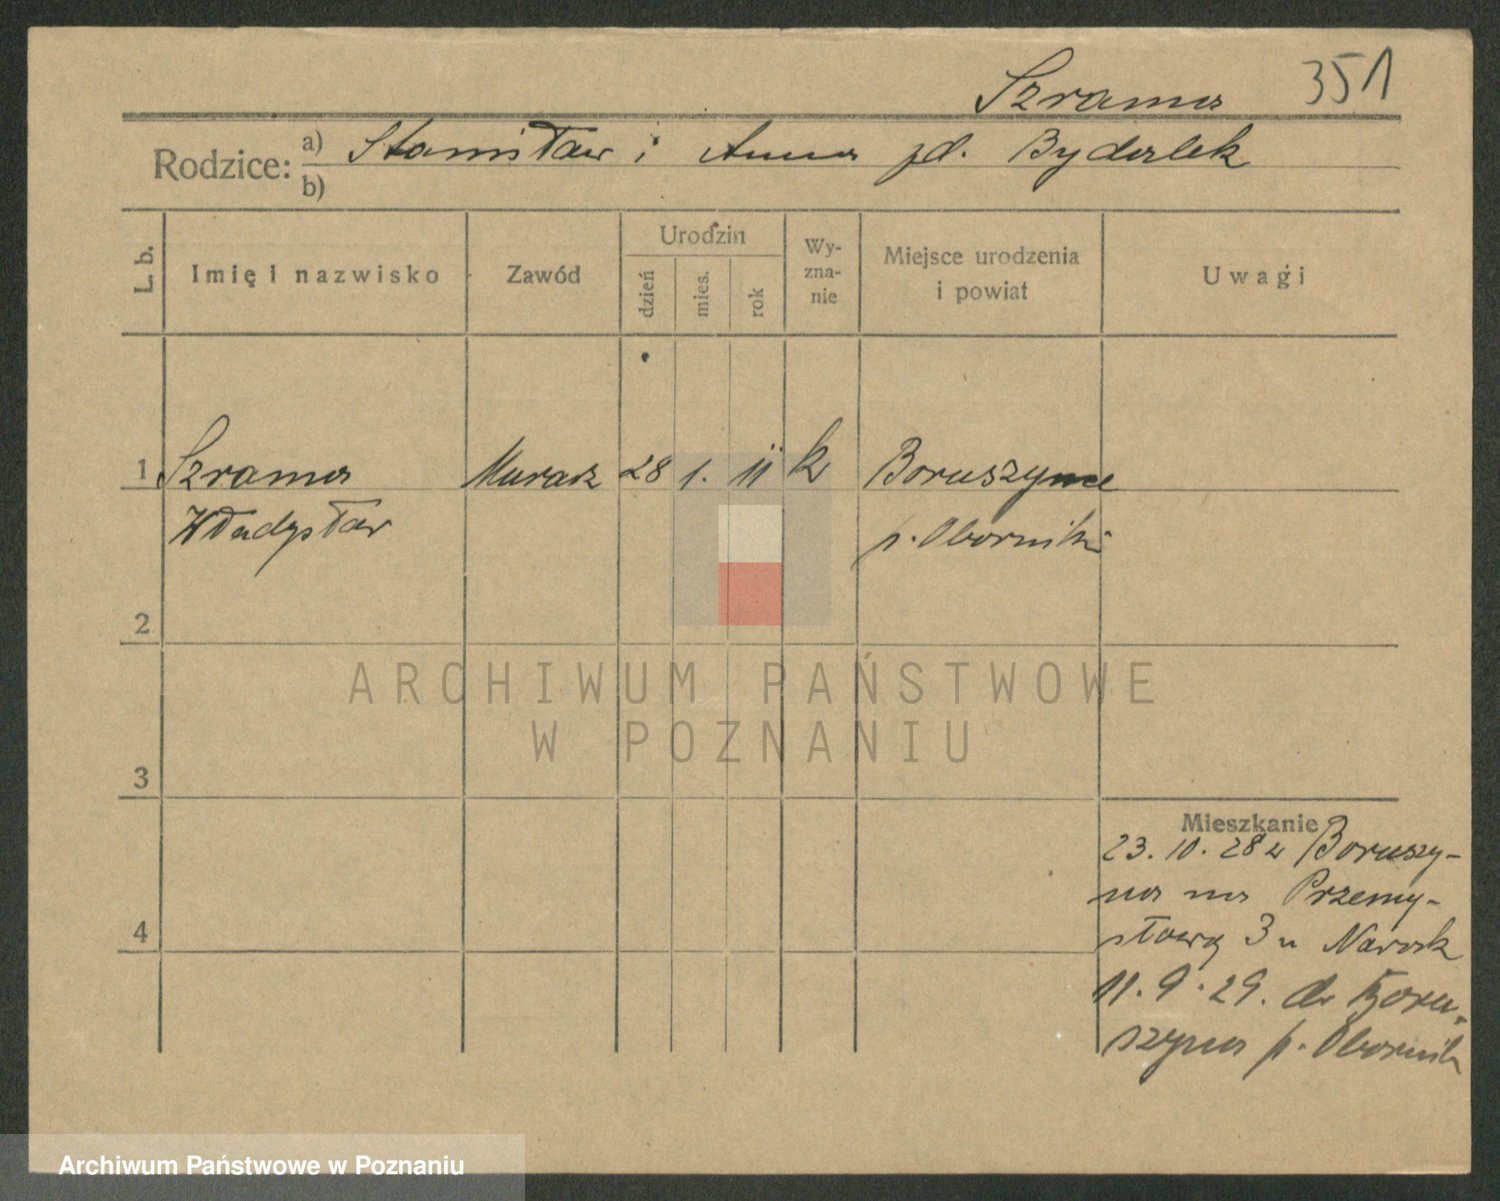 Szrama 351
Rodzice: a) Stanisław i Anna zd. Byderlek
b)
L. b. Imię i nazwisko Zawód Urodzin dzień mies. rok Wy-zna-nie Miejsce urodzenia i powiat Uwagi
1 Szrama Murarz 28 1. 11 k Boruszyna
Władysław p. Oborniki
2
3
4
Mieszkanie
23.10.28 z Boruszy-
na na Przemy-
słową 3 u Nawrk
11.9.29. do Boru-
szyna p. Obornik
ARCHIWUM PAŃSTWOWE
W POZNANIU
Archiwum Państwowe w Poznaniu